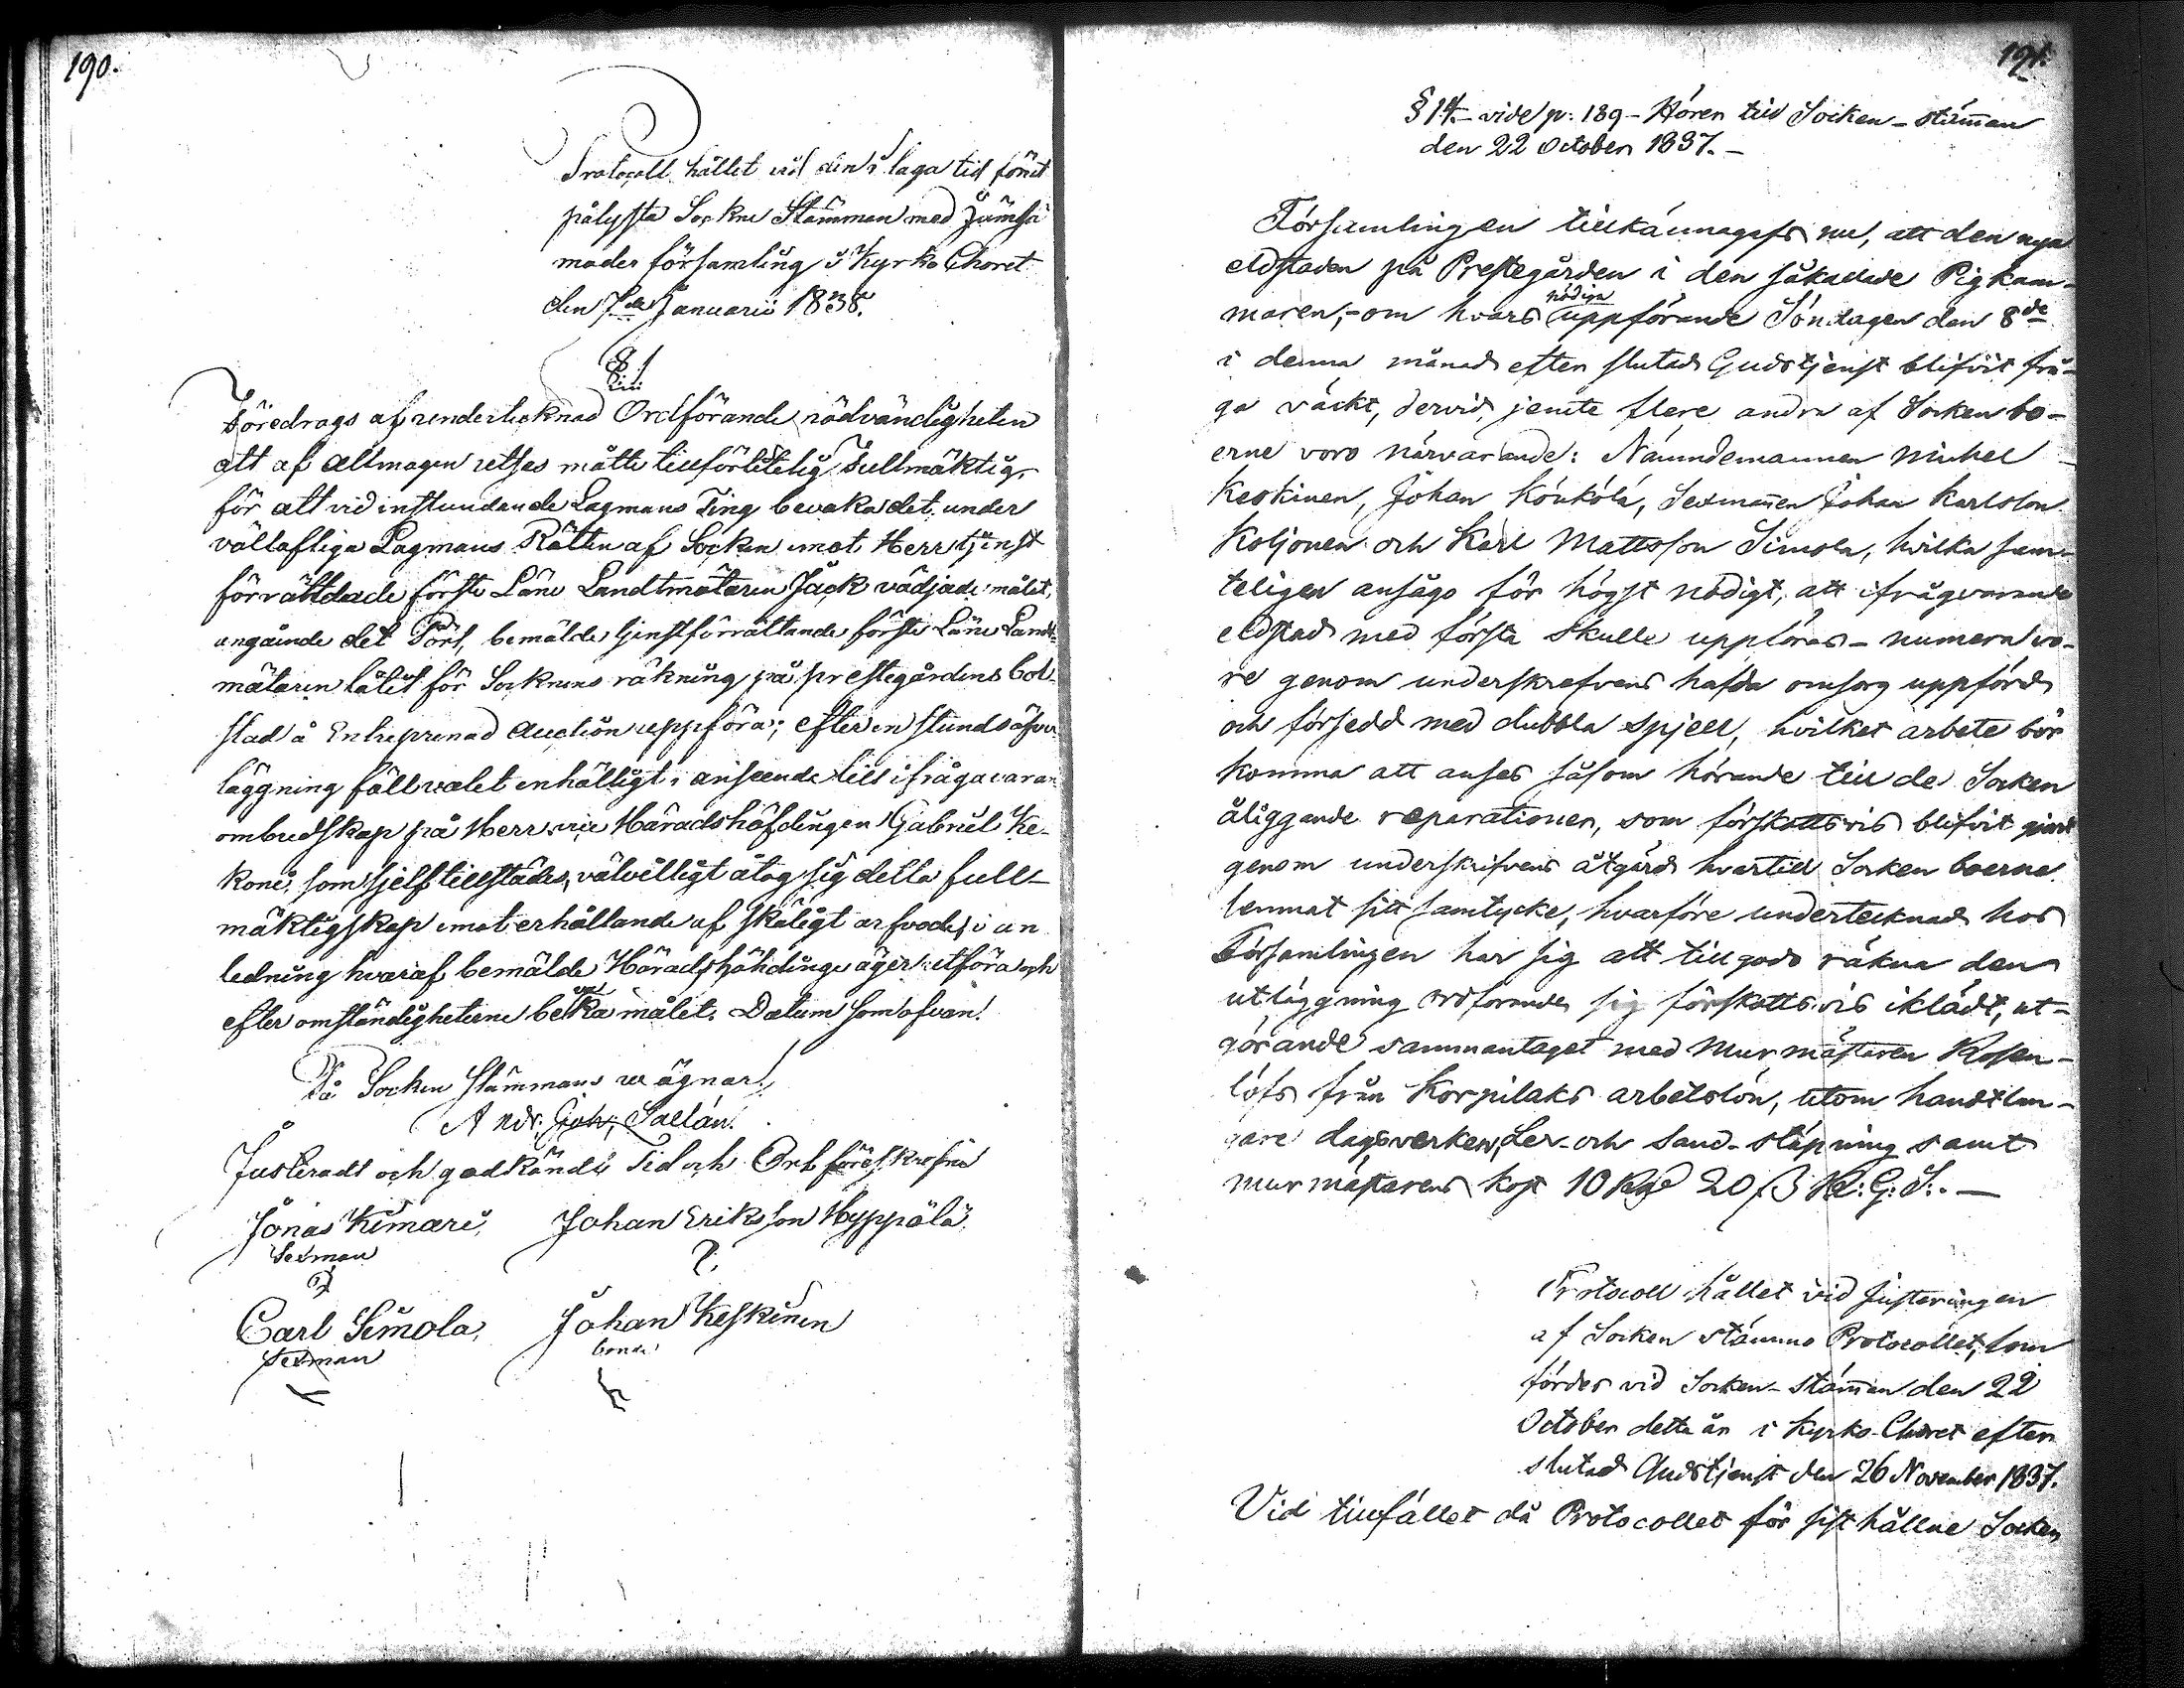 190.
Protocoll hållet vid den i laga tid förut
pålysta Sockne Stämman med Jämsä
moder församling i Kyrko Choret
den 7de Januarii 1838.
§ 1
Föredrogs af undertecknad Ordförande nödvändigheten
att af allmogen utses måtte tillförlitelig Fullmäktig,
för att vid instundande Lagmans Ting bevaka det under
vällofliga Lagmans Rätten af Socken emot Herr tjenst
förrättdade förste Läne Landtmätaren Jack vädjade målet,
angående det Pört, bemälde tjenstförrättande förste Läne Landt-
mätaren låtit för Socknens räkning på prestegårdens bol-
stad å Entreprenad Auction uppföra; efter en stunds öfver
läggning föll valet enhälligt i anseende till ifrågavaran
ombudskap på Herr vice Häradshöfdingen Gabriel Ke-
koni, som sjelf tillstädes, välvilligt åtog sig detta full-
mäktigskap emot erhållande af skäligt arfvode, i an
ledning hvaraf bemälde Häradshöfdinge äger utföra och
efter omständigheterne bevaka målet. Datum som ofvan.
På Socken Stämmans vägnar!
Andr. Joh. Sallán.
Justeradt och godkändt Tid och Ort föreskrefne
Jonas Kimari, Johan Eriksson Hyppölä
Sexman
Carl Simola, Johan Keskinen
Sexman bonde
191.
§ 14.- vide p: 189 - Hörer till Socken-stämman
den 22 October 1837. -
Församlingen tillkännagafs nu, att den nya
eldstaden på Prestegården i den såkallade Pigkam-
maren, - om hvars nödiga uppförande Söndagen den 8de
i denna månad efter slutad Gudstjenst blifvit frå-
ga väckt, dervid jemte flere andra af Sockenbo-
erne voro närvarande: Nämndemannen Michel
Keskinen, Johan Könkölä, Sexmannen Johan Karlsson
Koljonen och Karl Mattsson Simola, hvilka sam-
teligen ansågo för högst nödigt, att ifrågavarande
eldstad med första skulle uppföras - numera vo-
re genom underskrefvens hafda omsorg uppförd
och försedd med dubbla spjell, hvilket arbete bör
komma att anses såsom hörande till de Socken
åliggande reparationer, som förskottsvis blifvit gjordt
genom underskrifvens åtgärd hvartill Socken boerne
lemnat sitt samtycke, hvarföre undertecknad hos
Församlingen har sig att tillgodo räkna den
utläggning ordförande sig förskottsvis iklädt, ut-
görande sammantaget med Murmästaren Rosen-
löfs från Korpilaks arbetslön, utom handtlan-
gare dagsverken, Ler- och sand-släpning samt
murmästarens kost 10 Rd 20 ß R: G: S:. -
Protocoll hållet vid Justeringen
af Socken stämmo Protocollet, som
fördes vid Socken-stämman den 22
October detta år i Kyrko-Choret efter
slutad Gudstjenst den 26 November 1837.
Vid tillfället då Protocollet för sist hållne Socken